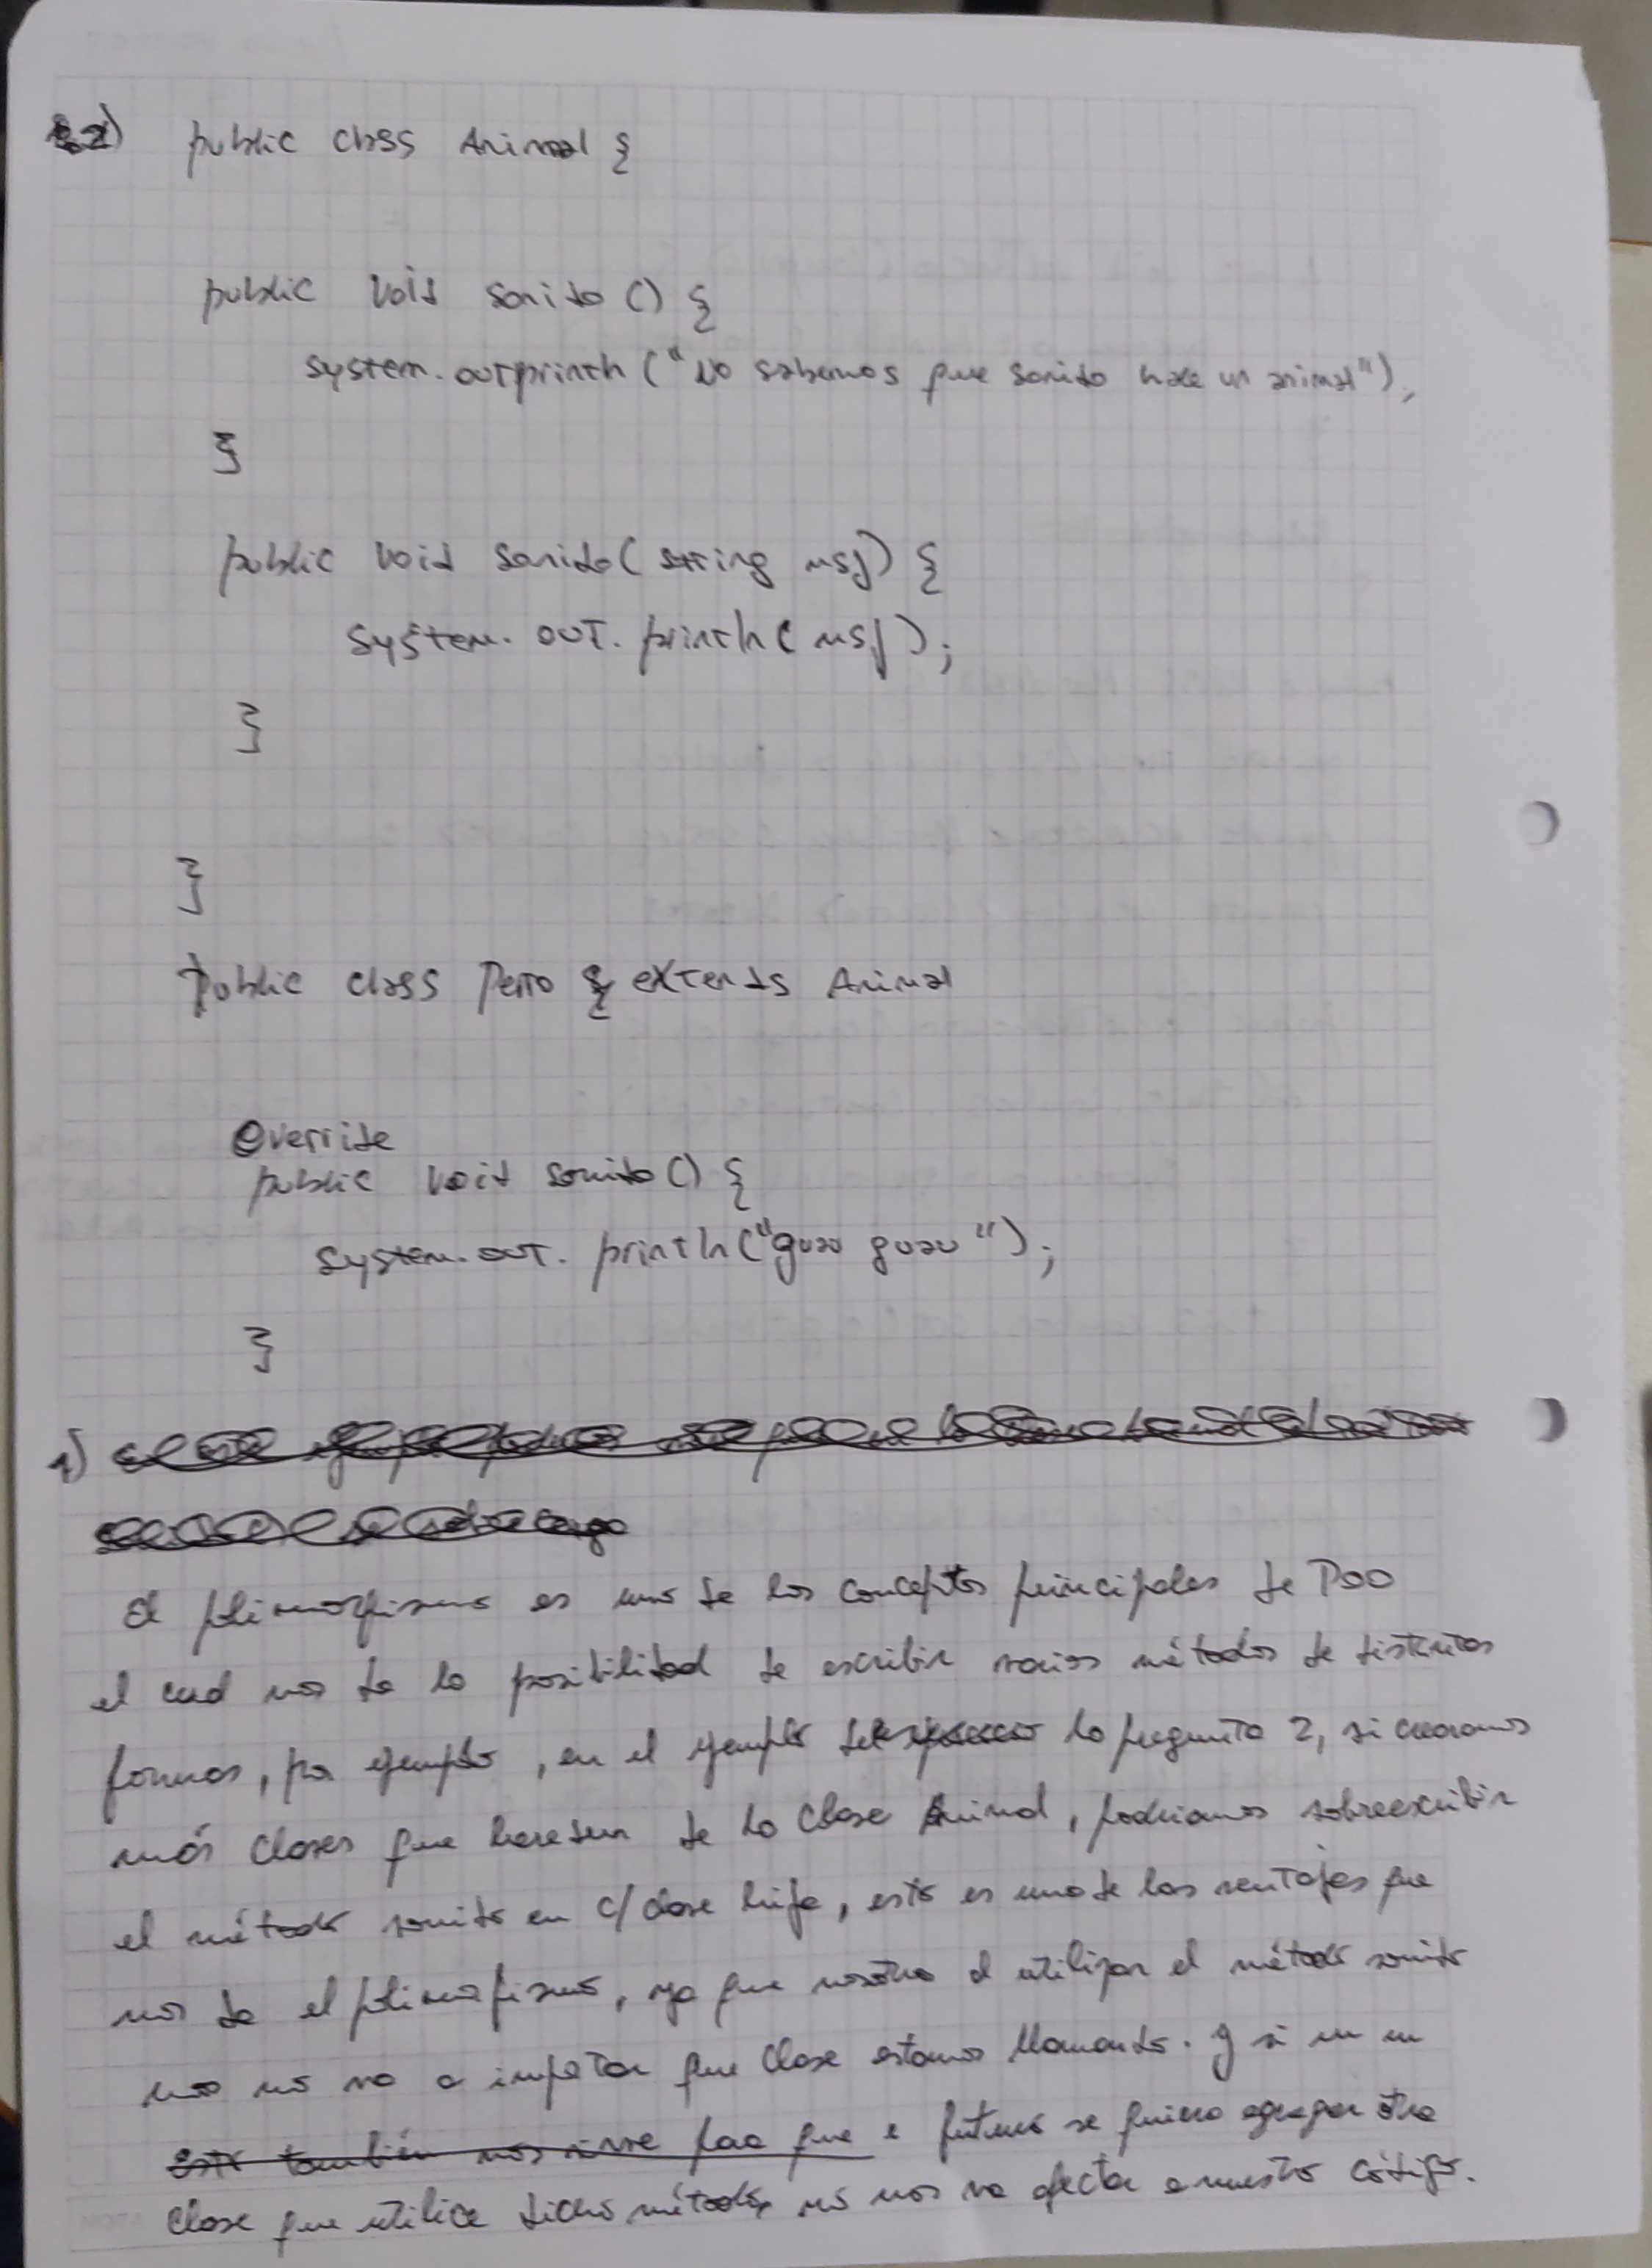 2) public class Animal {
public void sonido () {
system.outprintln ("No sabemos que sonido hace un animal");
}
public void sonido( string msj) {
system. out. println( msj );
}
}
public class Perro { extends Animal
Override
public void sonido() {
system.out. println("guau guau");
}
1)
El polimorfismo es uno de los conceptos principales de POO
el cual nos da la posibilidad de escribir varios métodos de distintas
formas, por ejemplo, en el ejemplo de la pregunta 2, si creamos
más clases que hereden de la clase Animal, podriamos sobreescribir
el método sonido en c/ clase hija, esto es una de las ventajas que
nos da el polimorfismo, ya que nosotro al utilizar el método sonido
nos no va a importar que clase estamos llamando. y si en un
esto también nos sirve para que e futuro se quiere agregar otra
clase que utilice dicho método, no nos va afectar a nuestro código.